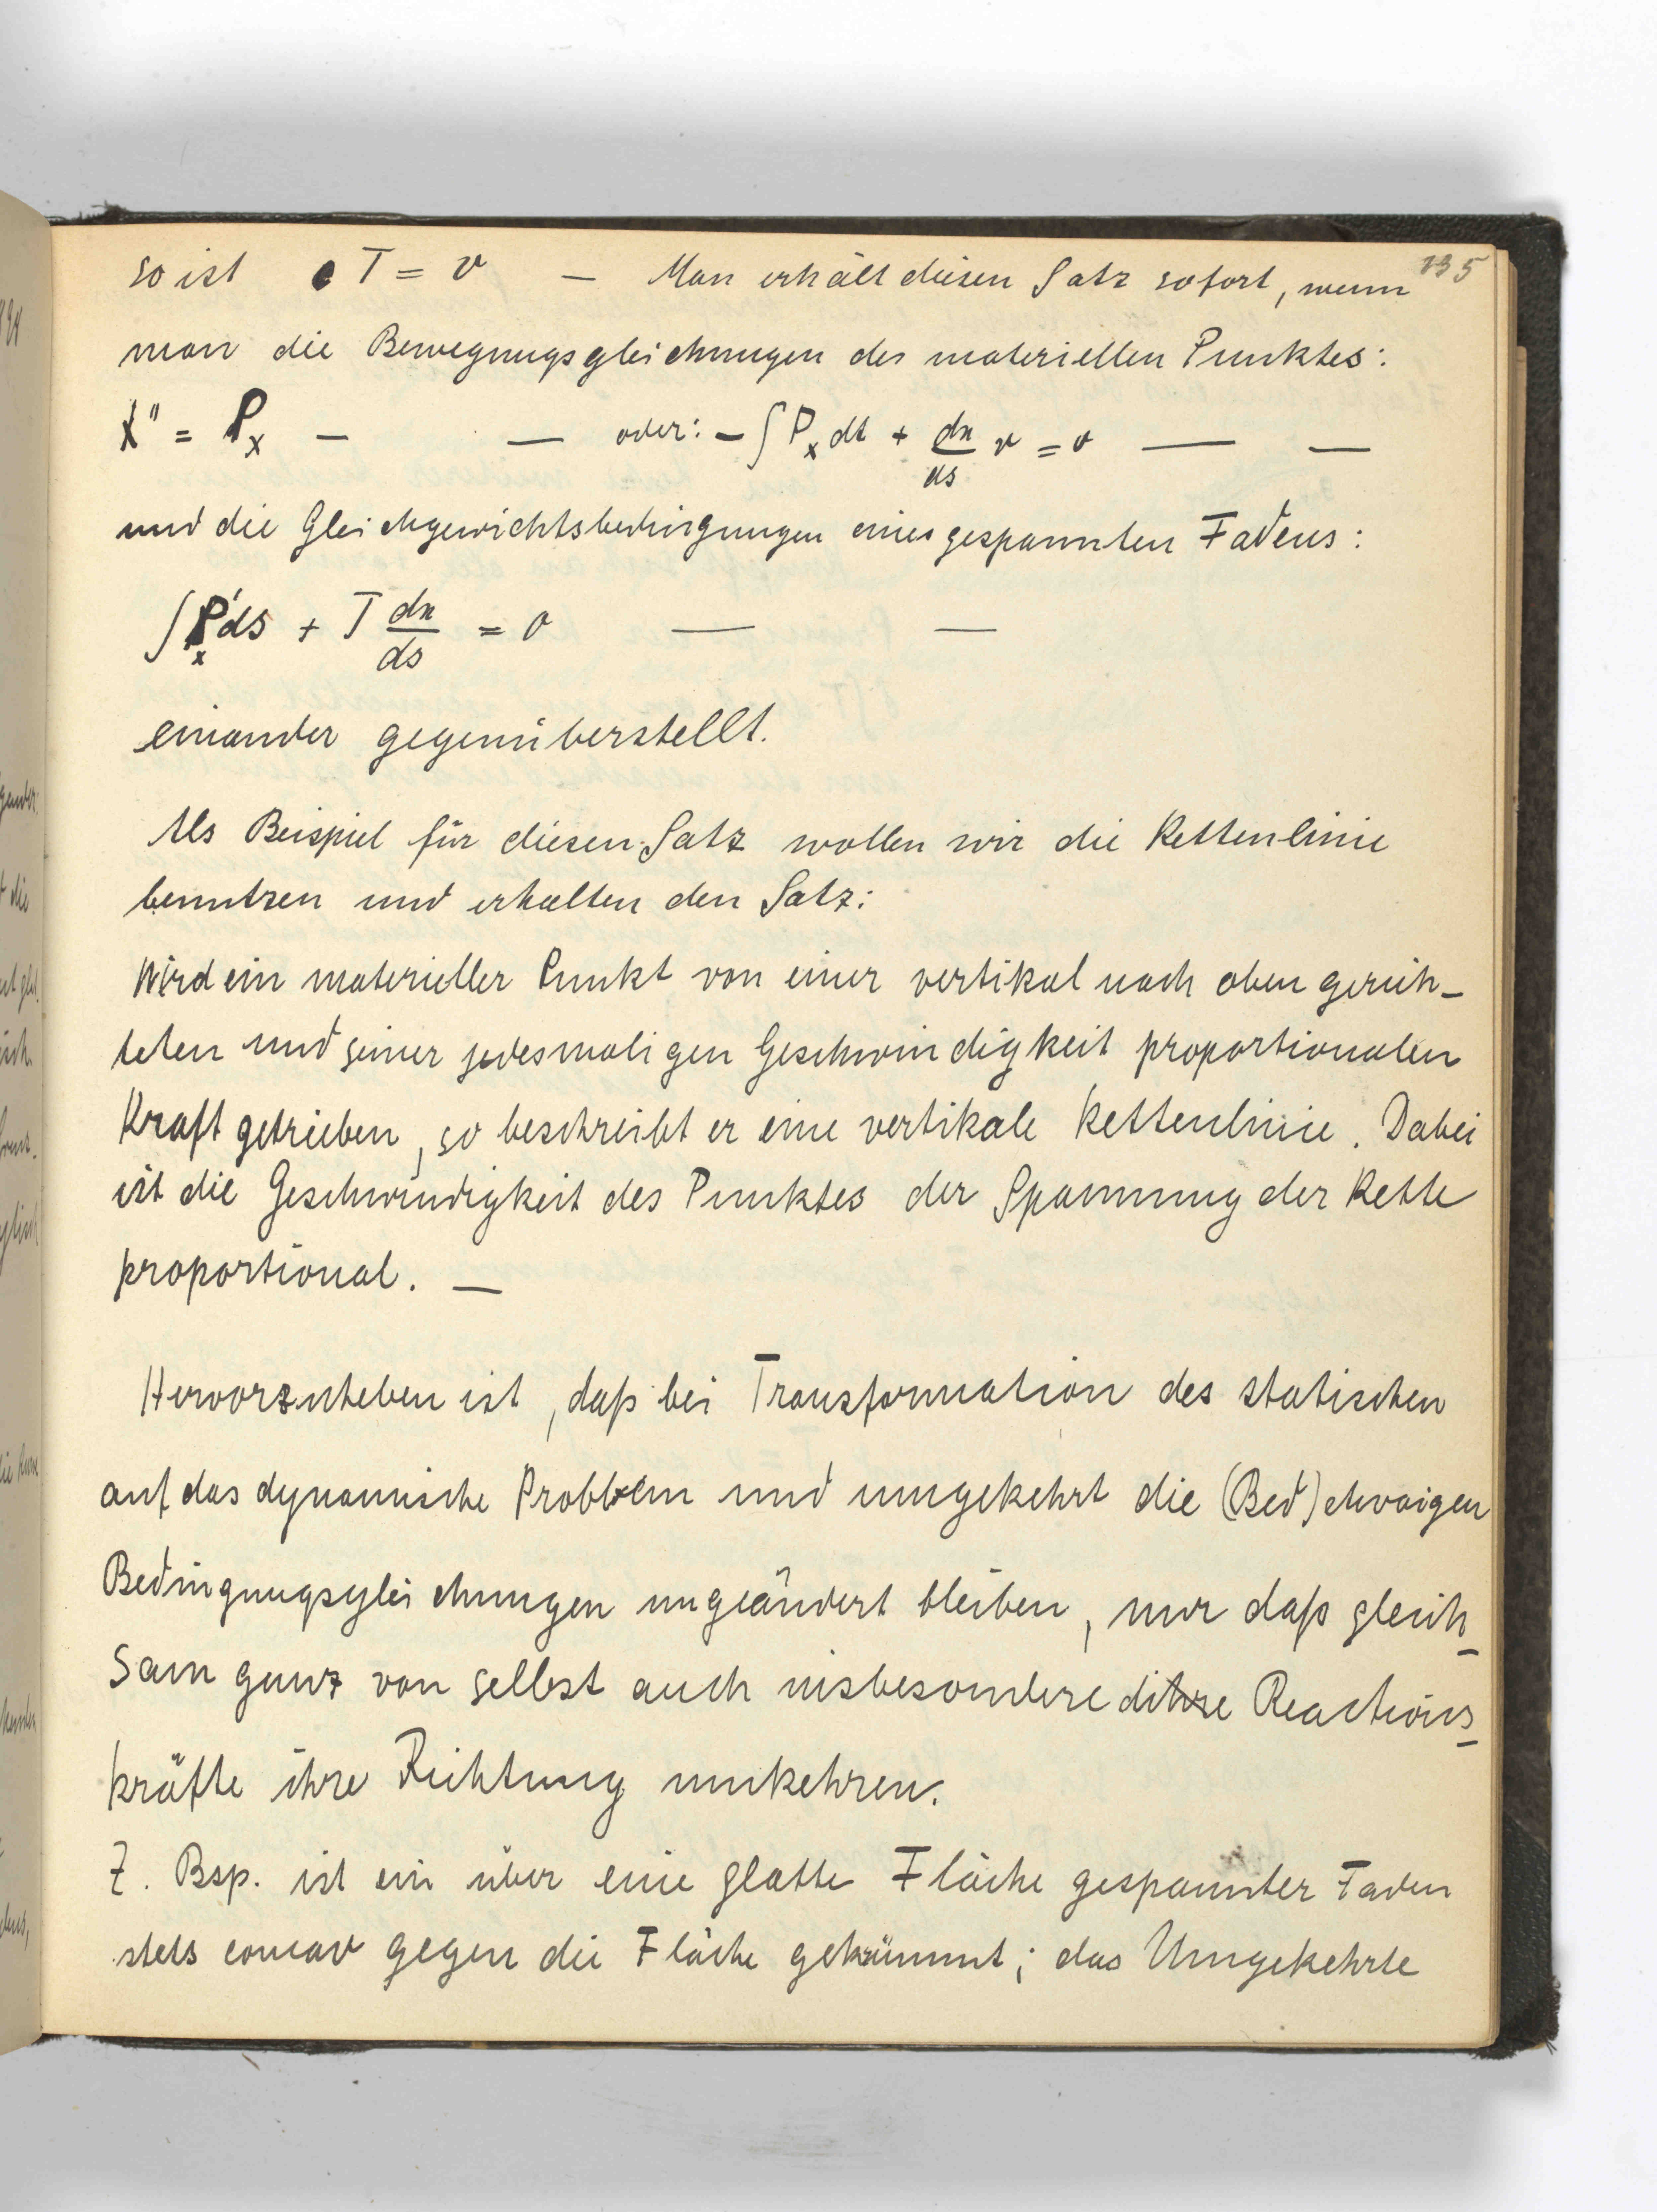 135
so ist T = v — Man erhält diesen Satz sofort, wenn
man die Bewegungsgleichungen des materiellen Punktes:
x'' = Pₓ — — oder: - ∫ Pₓ dt + dx/ds v = 0 — —
und die Gleichgewichtsbedingungen eines gespannten Fadens:
∫ P'ₓ ds + T dx/ds = 0 — —
einander gegenüberstellt.
Als Beispiel für diesen Satz wollen wir die Kettenlinie
benutzen und erhalten den Satz:
Wird ein materieller Punkt von einer vertikal nach oben gerich-
teten und seiner jedesmaligen Geschwindigkeit proportionalen
Kraft getrieben, so beschreibt er eine vertikale Kettenlinie. Dabei
ist die Geschwindigkeit des Punktes der Spannung der Kette
proportional. —
Hervorzuheben ist, daß bei Transformation des statischen
auf das dynamische Problem und umgekehrt die (Bed) etwaigen
Bedingungsgleichungen ungeändert bleiben, nur daß gleich-
sam ganz von selbst auch insbesondere die Reactions-
kräfte ihre Richtung umkehren.
Z. Bsp. ist ein über eine glatte Fläche gespannter Faden
stets concav gegen die Fläche gekrümmt; das Umgekehrte